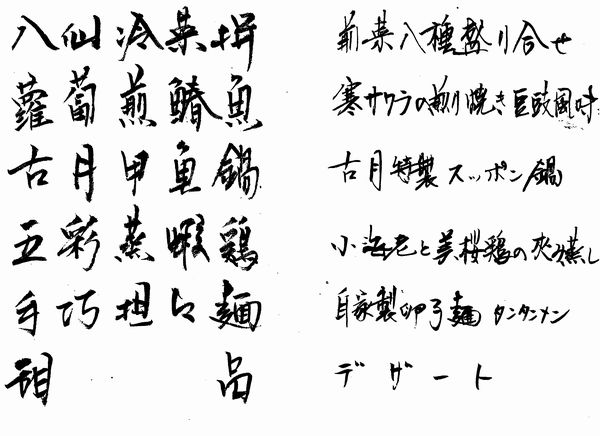 八仙冷菜拼 前菜八種盛り合せ
蘿蔔煎鰆魚 寒サワラの煎り焼き豆豉風味
古月甲魚鍋 古月特製スッポン鍋
五彩蒸蝦鶏 小海老と美桜鶏の夾み蒸し
手巧担々麺 自家製卵子麺 タンタンメン
甜品 デザート